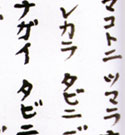 マコトニ ツマラ
レカラ タビニ
ナガイ タビニ